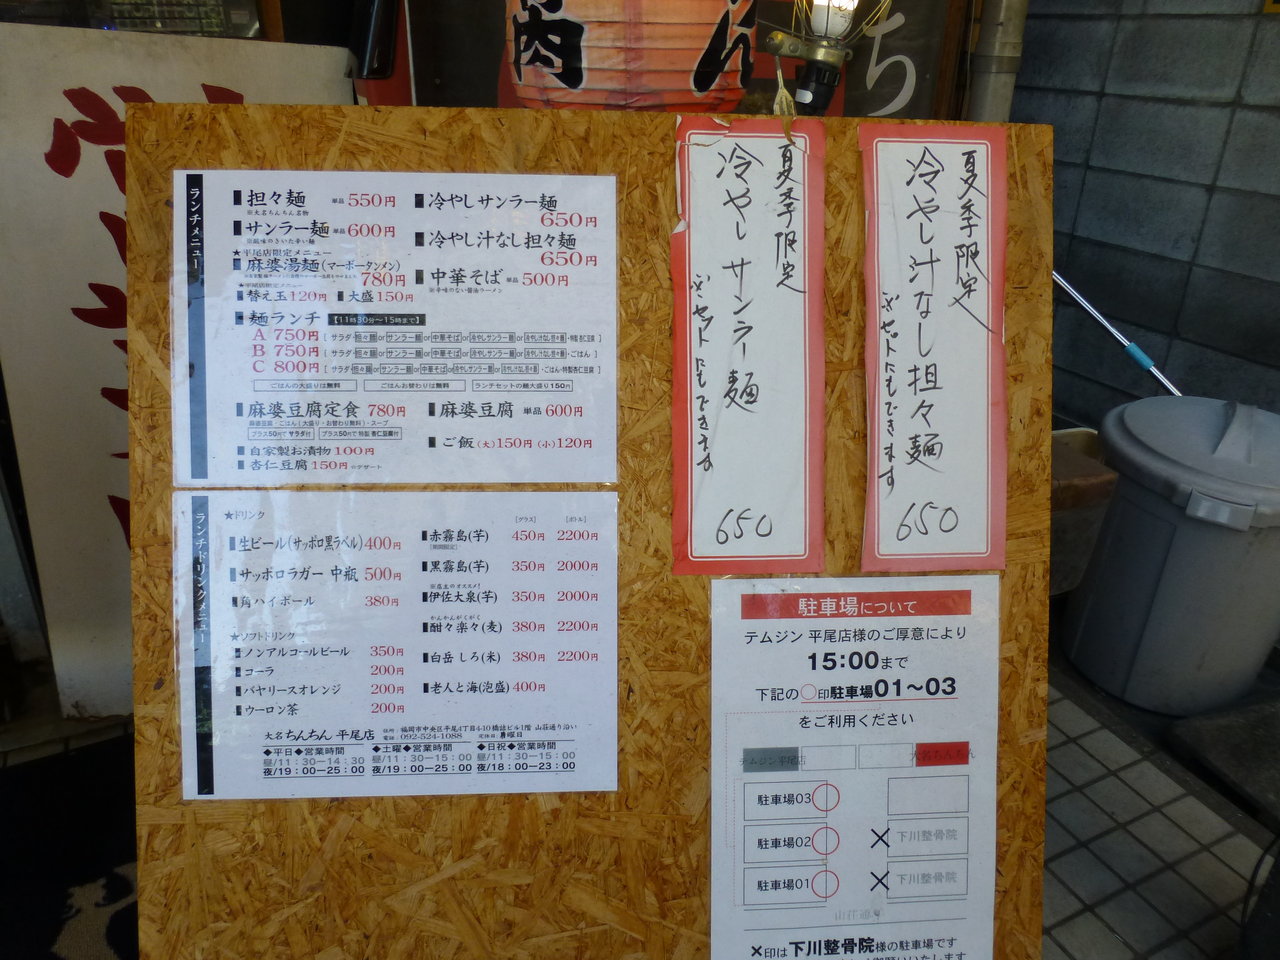 肉
ん
ち
ランチメニュー
担々麺 単品 550円
※大名ちんちん名物
サンラー麺 単品 600円
※酸味のきいた辛い麺
★平尾店限定メニュー
麻婆湯麺(マーボータンメン)
780円
★平尾店限定メニュー
替え玉120円 大盛150円
冷やしサンラー麺
650円
冷やし汁なし担々麺
650円
中華そば 単品 500円
※辛味のない醤油ラーメン
麺ランチ 【11時30分〜15時まで】
A 750円 [サラダ・担々麺orサンラー麺or中華そばor冷やしサンラー麺or冷やし汁なし担々麺・特製杏仁豆腐]
B 750円 [サラダ・担々麺orサンラー麺or中華そばor冷やしサンラー麺or冷やし汁なし担々麺・ごはん]
C 800円 [サラダ・担々麺orサンラー麺or中華そばor冷やしサンラー麺or冷やし汁なし担々麺・ごはん・特製杏仁豆腐]
ごはんの大盛りは無料 ごはんお替わりは無料 ランチセットの麺大盛り150円
麻婆豆腐定食 780円
麻婆豆腐・ごはん(大盛り・お替わり無料)・スープ
プラス50円でサラダ付 プラス50円で特製杏仁豆腐付
自家製お漬物 100円
杏仁豆腐 150円 ☆デザート
麻婆豆腐 単品 600円
ご飯(大)150円(小)120円
ランチドリンクメニュー
★ドリンク
生ビール(サッポロ黒ラベル)400円
サッポロラガー 中瓶 500円
角ハイボール 380円
★ソフトドリンク
ノンアルコールビール 350円
コーラ 200円
バヤリースオレンジ 200円
ウーロン茶 200円
[グラス] [ボトル]
赤霧島(芋) 450円 2200円
[期間限定]
黒霧島(芋) 350円 2000円
※店主のオススメ!
伊佐大泉(芋) 350円 2000円
かんかんがくがく
酣々楽々(麦) 380円 2200円
白岳 しろ(米) 380円 2200円
老人と海(泡盛)400円
大名ちんちん 平尾店 住所:福岡市中央区平尾4丁目4-10橋詰ビル1階 山荘通り沿い
電話:092-524-1088 定休日:月曜日
◆平日◆営業時間
昼/11：30−14：30
夜/19：00−25：00
◆土曜◆営業時間
昼/11：30−15：00
夜/19：00−25：00
◆日祝◆営業時間
昼/11：30−15：00
夜/18：00−23：00
夏季限定
冷やしサンラー麺
※セットにもできます
650
夏季限定
冷やし汁なし担々麺
※セットにもできます
650
駐車場について
テムジン 平尾店様のご厚意により
15:00まで
下記の○印駐車場01〜03
をご利用ください
テムジン平尾店 大名ちんちん
駐車場03
駐車場02 × 下川整骨院
駐車場01 × 下川整骨院
山荘通り
×印は下川整骨院様の駐車場です